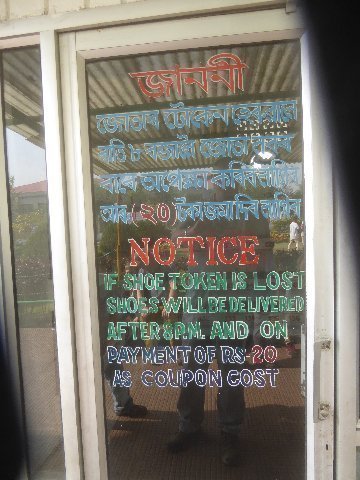 জাননী
জোতাৰ টোকেন হেৰালে
যদি ৮ বজালৈ
বাবে অপেক্ষা কৰিব লাগিব
আৰু (২০) টকা জমা দিব লাগিব
NOTICE
IF SHOE TOKEN IS LOST
SHOES WILL BE DELIVERED
AFTER 8 P.M. AND ON
PAYMENT OF RS-20
AS COUPON COST